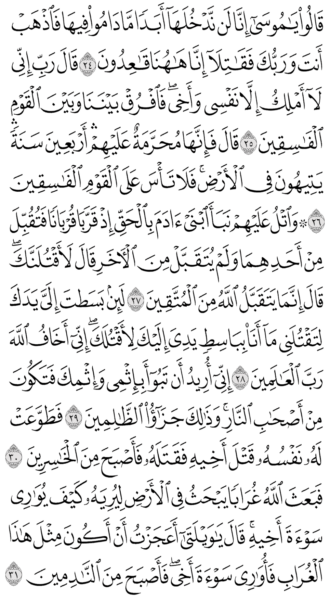 قَالُوا۟ يَـٰمُوسَىٰٓ إِنَّا لَن نَّدْخُلَهَآ أَبَدًا مَّا دَامُوا۟ فِيهَا فَٱذْهَبْ
أَنتَ وَرَبُّكَ فَقَـٰتِلَآ إِنَّا هَـٰهُنَا قَـٰعِدُونَ ٢٤ قَالَ رَبِّ إِنِّى
لَآ أَمْلِكُ إِلَّا نَفْسِى وَأَخِى ۖ فَٱفْرُقْ بَيْنَنَا وَبَيْنَ ٱلْقَوْمِ
ٱلْفَـٰسِقِينَ ٢٥ قَالَ فَإِنَّهَا مُحَرَّمَةٌ عَلَيْهِمْ ۛ أَرْبَعِينَ سَنَةً ۛ
يَتِيهُونَ فِى ٱلْأَرْضِ ۚ فَلَا تَأْسَ عَلَى ٱلْقَوْمِ ٱلْفَـٰسِقِينَ
٢٦ ۞ وَٱتْلُ عَلَيْهِمْ نَبَأَ ٱبْنَىْ ءَادَمَ بِٱلْحَقِّ إِذْ قَرَّبَا قُرْبَانًا فَتُقُبِّلَ
مِنْ أَحَدِهِمَا وَلَمْ يُتَقَبَّلْ مِنَ ٱلْـَٔاخَرِ قَالَ لَأَقْتُلَنَّكَ ۖ
قَالَ إِنَّمَا يَتَقَبَّلُ ٱللَّهُ مِنَ ٱلْمُتَّقِينَ ٢٧ لَئِنۢ بَسَطتَ إِلَىَّ يَدَكَ
لِتَقْتُلَنِى مَآ أَنَا۠ بِبَاسِطٍ يَدِىَ إِلَيْكَ لِأَقْتُلَكَ ۖ إِنِّىٓ أَخَافُ ٱللَّهَ
رَبَّ ٱلْعَـٰلَمِينَ ٢٨ إِنِّىٓ أُرِيدُ أَن تَبُوٓأَ بِإِثْمِى وَإِثْمِكَ فَتَكُونَ
مِنْ أَصْحَـٰبِ ٱلنَّارِ ۚ وَذَٰلِكَ جَزَٰٓؤُا۟ ٱلظَّـٰلِمِينَ ٢٩ فَطَوَّعَتْ
لَهُۥ نَفْسُهُۥ قَتْلَ أَخِيهِ فَقَتَلَهُۥ فَأَصْبَحَ مِنَ ٱلْخَـٰسِرِينَ ٣٠
فَبَعَثَ ٱللَّهُ غُرَابًا يَبْحَثُ فِى ٱلْأَرْضِ لِيُرِيَهُۥ كَيْفَ يُوَٰرِى
سَوْءَةَ أَخِيهِ ۚ قَالَ يَـٰوَيْلَتَىٰٓ أَعَجَزْتُ أَنْ أَكُونَ مِثْلَ هَـٰذَا
ٱلْغُرَابِ فَأُوَٰرِىَ سَوْءَةَ أَخِى ۖ فَأَصْبَحَ مِنَ ٱلنَّـٰدِمِينَ ٣١